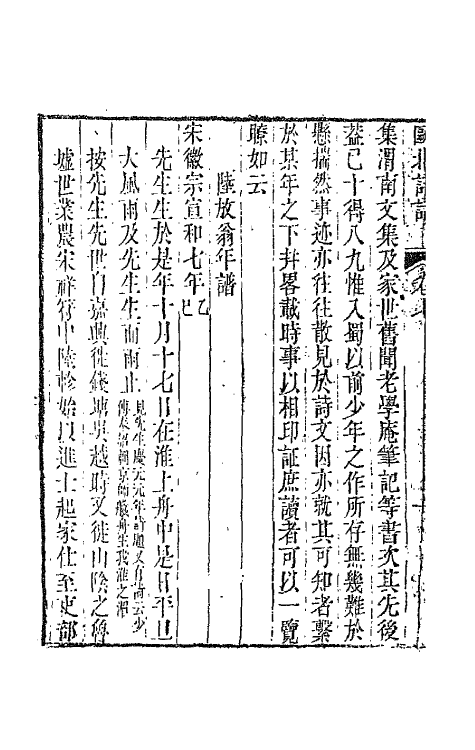 甌北詩話
集渭南文集及家世舊聞老學庵筆記等書次其先後
蓋已十得八九惟入蜀以前少年之作所存無幾難於
懸揣然事迹亦往往散見於詩文因亦就其可知者繫
於某年之下并畧載時事以相印証庶讀者可以一覽
瞭如云
陸放翁年譜
宋徽宗宣和七年乙巳
先生生於是年十月十七日在淮上舟中是日平旦
大風雨及先生生而雨止見先生慶元元年詩題又有詩云少
傅奉詔朝京師艤船生我淮之湄
按先生先世自嘉興徙錢塘吳越時又徙山陰之魯
墟世業農宋祥符中陸軫始以進士起家仕至吏部